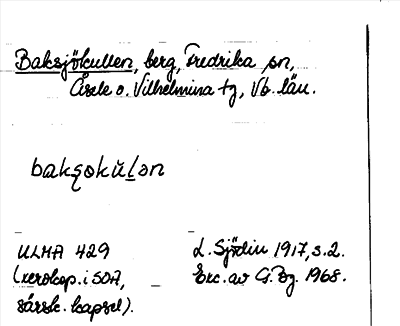 Baksjökullen, berg, Fredrika sn,
Åsele o. Vilhelmina tg, Vb. län.
bakʂokŭlən
ULMA 429
(xerokop. i SOA,
särsk. kapsel).
L. Sjödin 1917, s. 2.
Exc. av G. Bg. 1968.